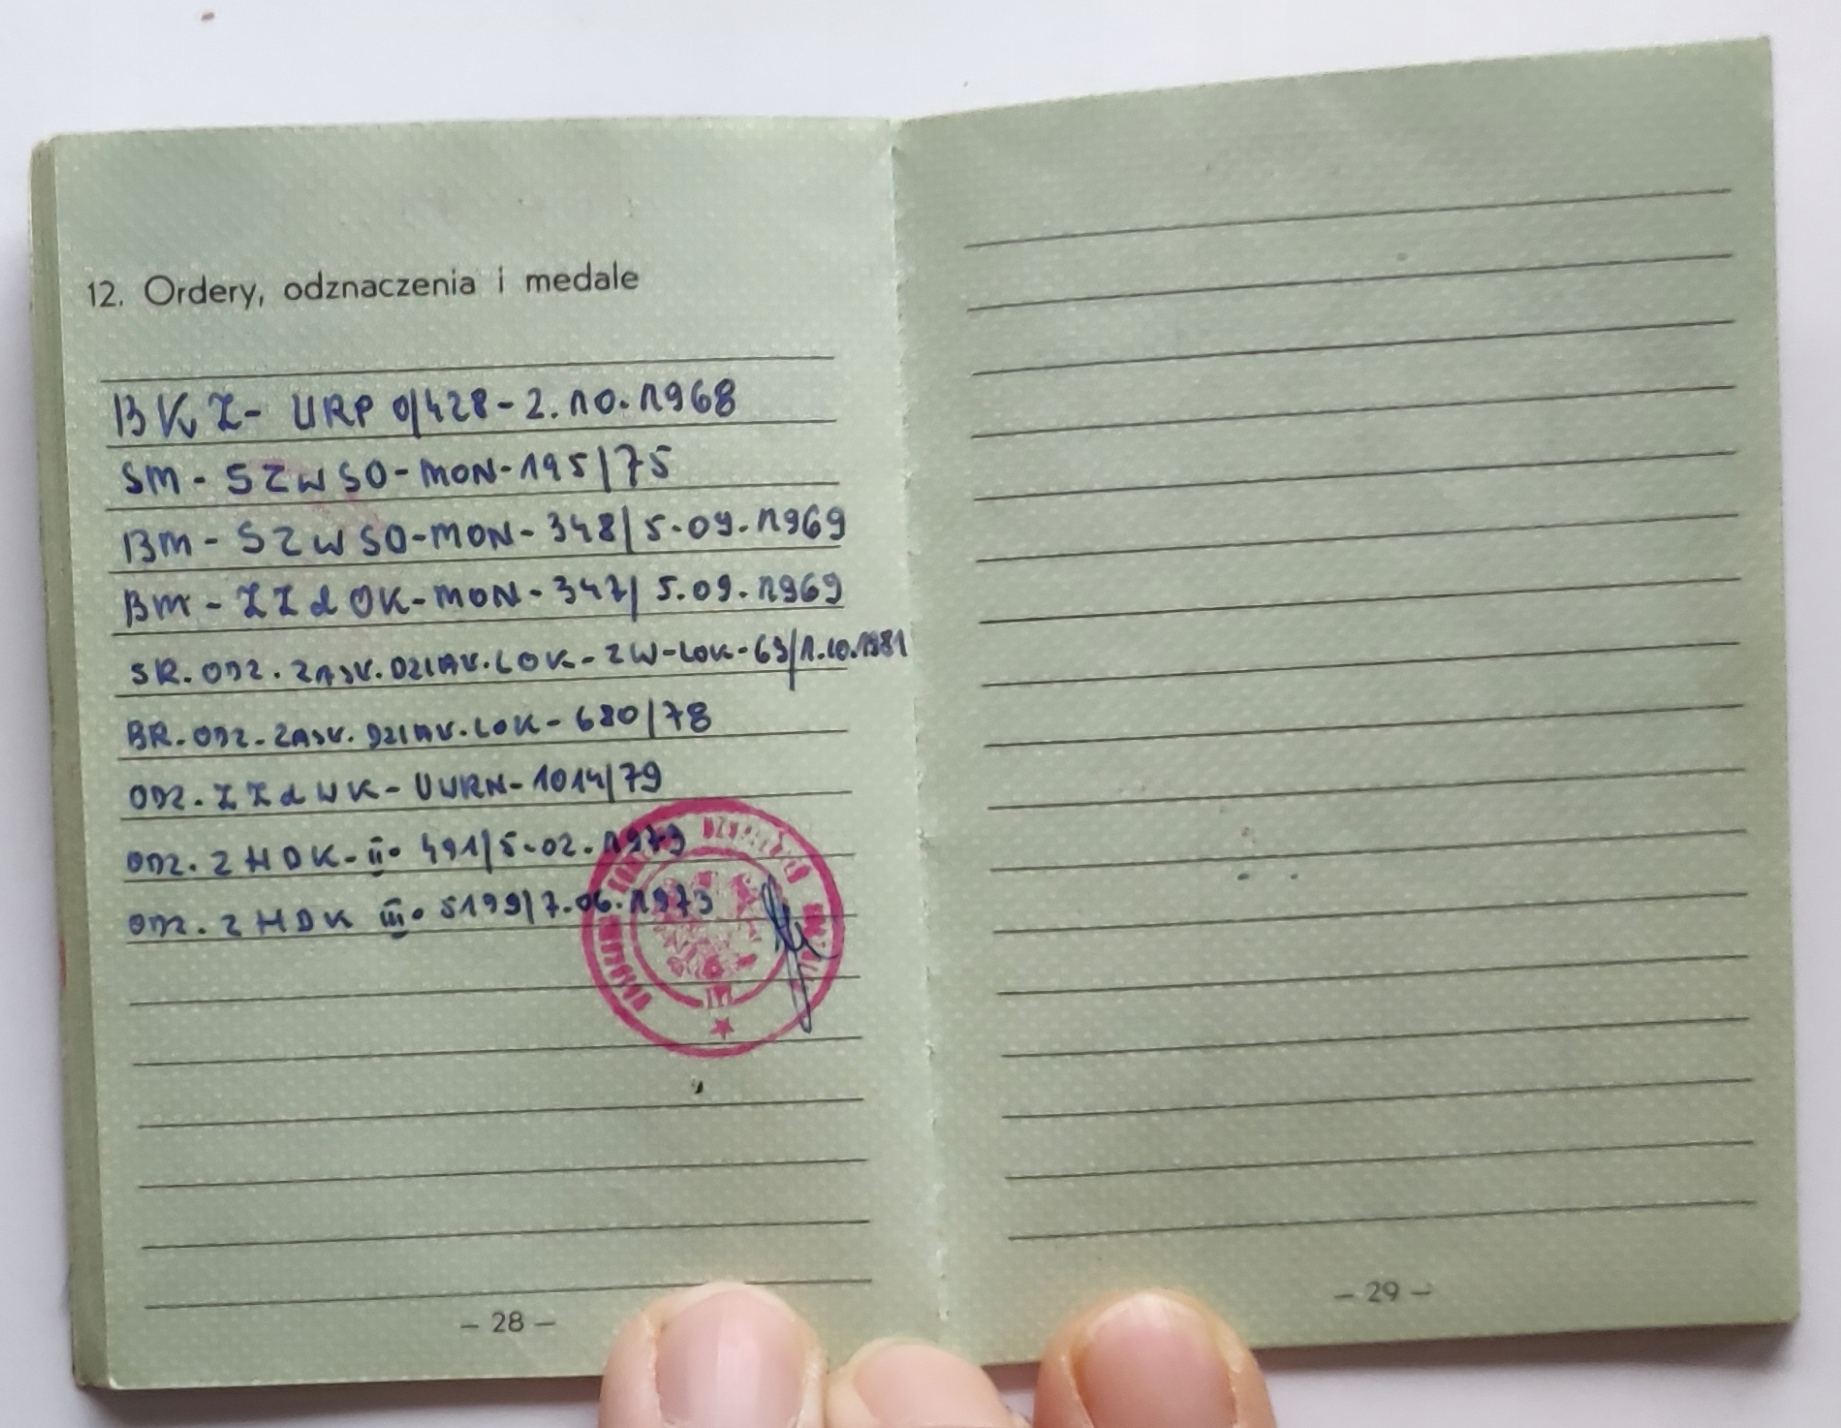 12. Ordery, odznaczenia i medale
BKZ- URP 0/428-2.10.1968
SM - SZWSO-MON-195/75
BM - SZWSO-MON-348/5.09.1969
BM - ZZdOK-MON-347/5.09.1969
SR.ODZ.ZASŁ.DZIAŁ.LOK-ZW-LOK-63/1.10.1981
BR.ODZ.ZASŁ.DZIAŁ.LOK-680/78
ODZ.ZZdWK-UWRN-1014/79
ODZ.ZHDK-II° 491/5.02.1979
ODZ.ZHDK III° 5199/7.06.1973
– 28 –
– 29 –